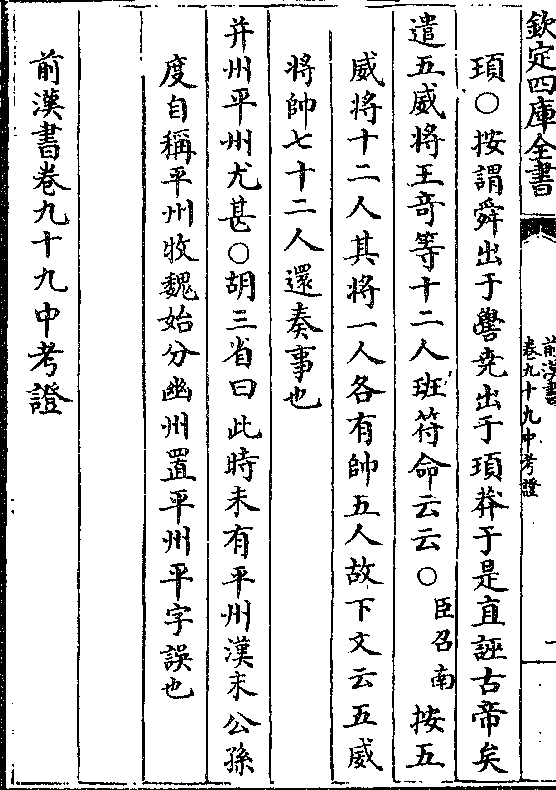 欽定四庫全書
前漢書
卷九十九中考證
一
頊○按謂舜出于嚳堯出于頊莽于是直誣古帝矣
遣五威將王竒等十二人班符命云云○臣召南按五
威將十二人其將一人各有帥五人故下文云五威
將帥七十二人還奏事也
并州平州尤甚○胡三省曰此時未有平州漢末公孫
度自稱平州牧魏始分幽州置平州平字誤也
前漢書卷九十九中考證